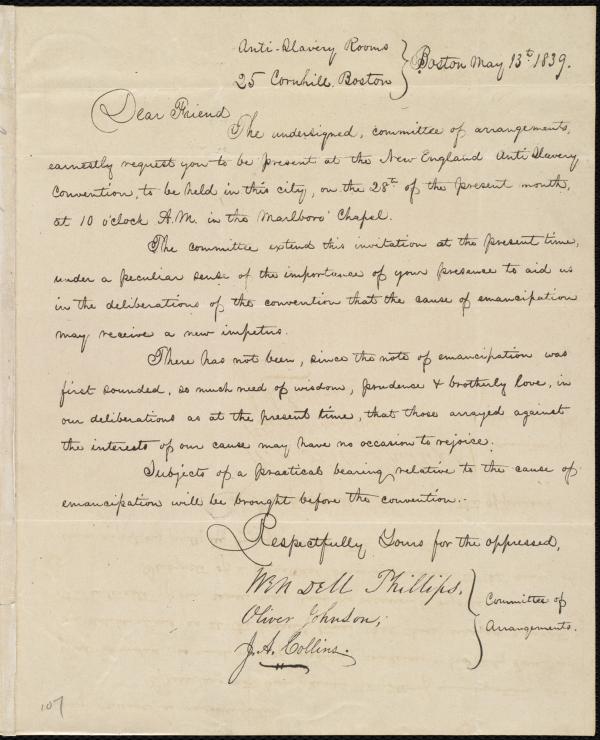 Anti-Slavery Rooms
25 Cornhill, Boston
Boston May 13th 1839.
Dear Friend
The undersigned, committee of arrangements,
earnestly request you to be present at the New England Anti Slavery
Convention, to be held in this city, on the 28th of the present month,
at 10 o'clock A.M. in the Marlboro' Chapel.
The committee extend this invitation at the present time,
under a peculiar sense of the importance of your presence to aid us
in the deliberations of the convention that the cause of emancipation
may receive a new impetus.
There has not been, since the note of emancipation was
first sounded, so much need of wisdom, prudence & brotherly love, in
our deliberations as at the present time, that those arrayed against
the interests of our cause may have no occasion to rejoice.
Subjects of a practical bearing relative to the cause of
emancipation will be brought before the convention.
Respectfully Yours for the oppressed,
Wendell Phillips,
Oliver Johnson,
J.A. Collins.
Committee of
Arrangements.
107